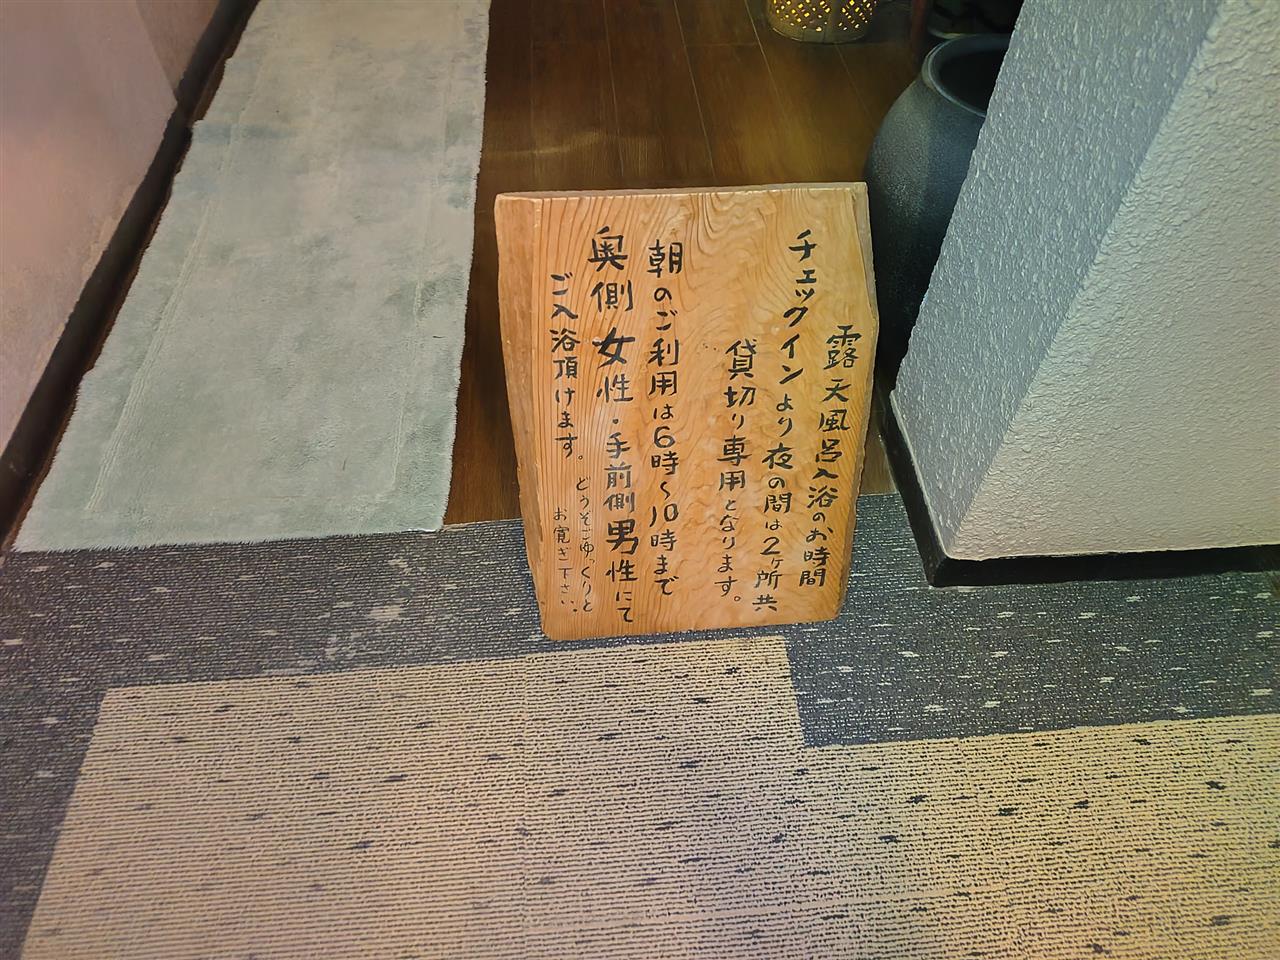 露天風呂入浴のお時間
チェックインより夜の間は2ヶ所共
貸切り専用となります。
朝のご利用は6時~10時まで
奥側女性・手前側男性にて
ご入浴頂けます。
どうぞごゆっくりと
お寛ぎ下さい。